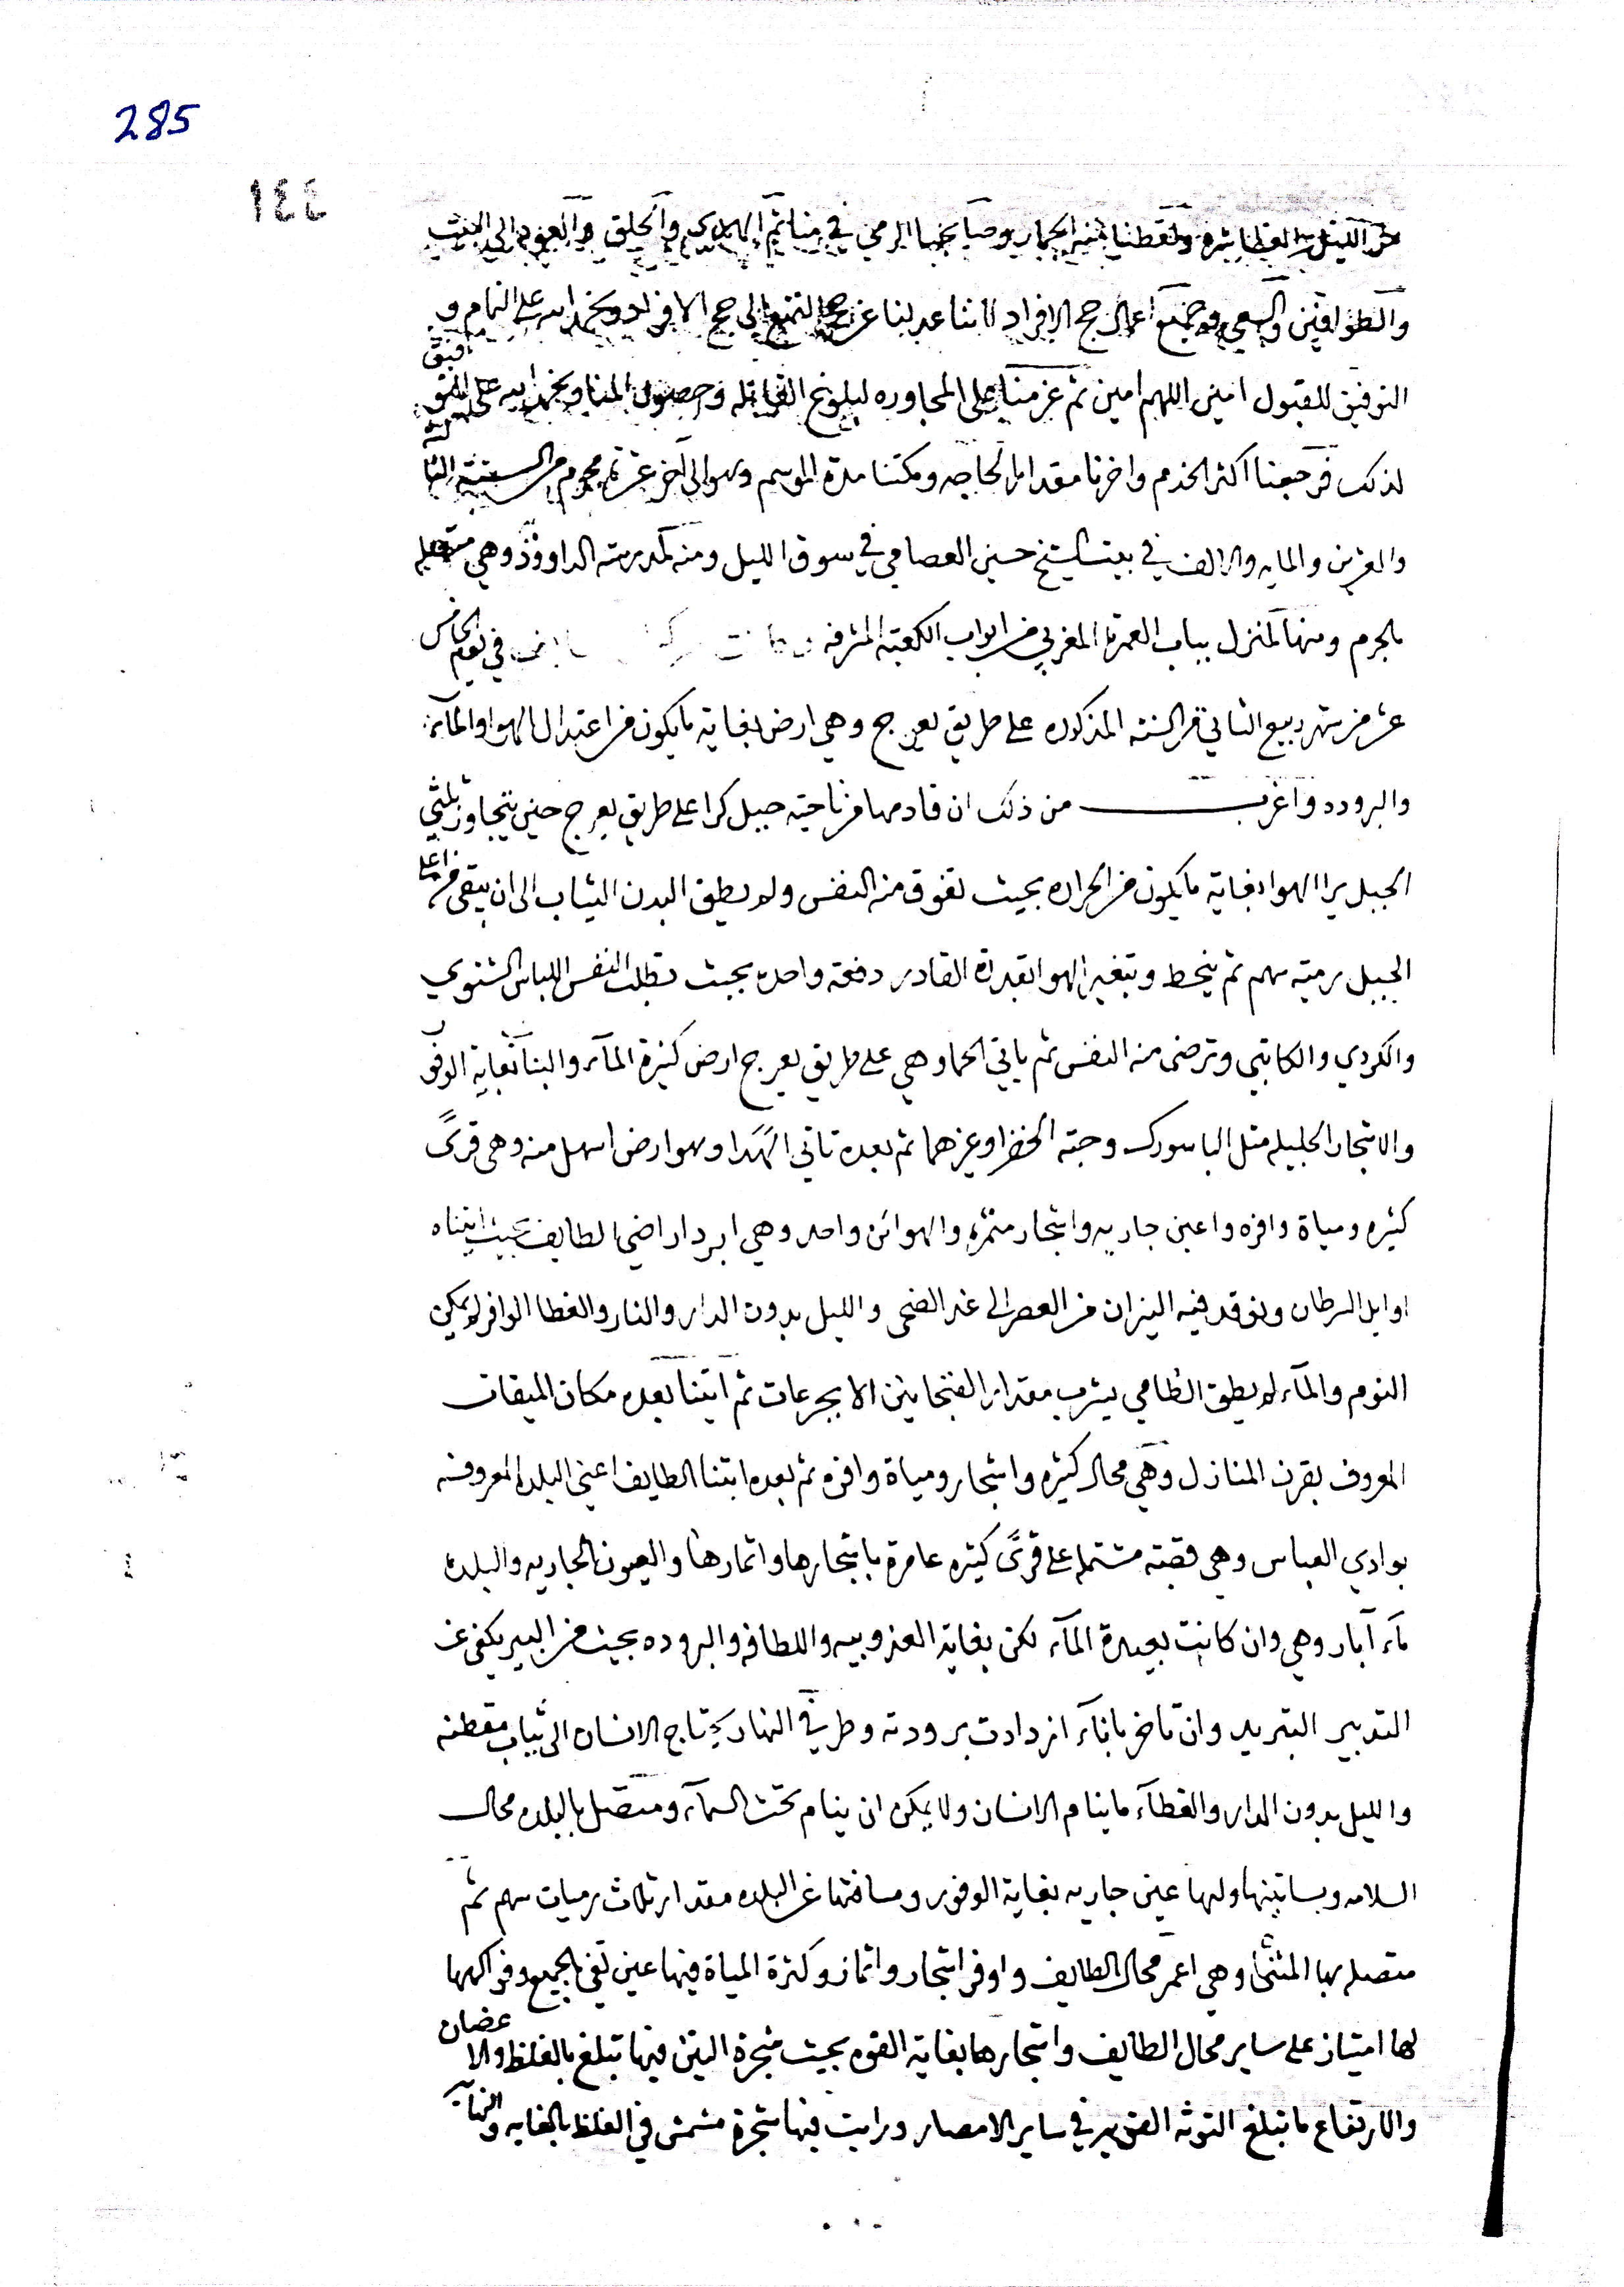 285
١٤٤
من الليل ولقطنا منه الجمار وصاحبنا الرمي في منا ثم الهدي والحلق والعود الى البيت
والطوافين والسعي وجميع اعمال حج الافراد لاننا عدلنا عن حج التمتع الى حج الافراد ونحمد الله على التمام و
التوفيق للقبول امين اللهم امين ثم عزمنا على المجاوره لبلوغ القابله وحصول المنا ونحمد الله على التوفيق
لذلك فرجعنا اكثر الخدم واخرنا مقدار الحاجه ومكثنا مدة الموسم وهو الى آخر عشر محرم من السنة الثالثه
والعشرين والمايه والالف في بيت الشيخ حسين العصامي في سوق الليل ومنه لمدرسة الداووذ وهي متصله
بالحرم ومنها لمنزل بباب العمرة المغربي من ابواب الكعبة المشرفه في يوم الخامس
عشر من شهر ربيع الثاني من السنه المذكوره على طريق يعرج وهي ارض بغاية ما يكون من اعتدال الهوا والمآء
والبروده واغرب من ذلك ان قادمها من ناحية جبل كرا على طريق يعرج حين يتجاوز ثلثي
الجبل يرا الهوا بغاية ما يكون من الحراره بحيث تفوق منه النفس ولا يطيق البدن الثياب الى ان يبقى من اعلى
الجبل رمية سهم ثم ينحط ويتغير الهوا بقدرة القادر دفعة واحده بحيث تطلب النفس اللباس الشتوي
والكردي والكاتبي وترضى منه النفس ثم ياتي الحما وهي على طريق يعرج ارض كثيرة المآء والبنا بغاية الوفور
والاشجار الجليله مثل الباسورك وحبة الخضرا وغيرهما ثم بعده تاتي الهَدَا وهو ارض اسهل منه وهي قرىً
كثيره ومياة وافره واعين جاريه واشجار مثمره والهوائن واحد وهي ابرد اراضي الطايف بحيث اتيناه
اوايل السرطان ونوقد فيه النيران من العصر الى غد الضحى والليل بدون الدار والنار والغطا الوافر لا يمكن
النوم والمآء لا يطيق الظامي يشرب مقدار الفنجانين الا بجرعات ثم اتينا بعده مكان الميقات
المعروف بقرن المنازل وهي محال كثيره واشجار ومياة وافره ثم بعده اتينا الطايف اعني البلده المعروفه
بوادي العباس وهي قصبة مشتمله على قرىً كثيره عامرة باشجارها واثمارها والعيون الجاريه والبلده
مآء آبار وهي وان كانت بعيدة المآء لكن بغاية العذوبيه واللطافه والبروده بحيث من البير يكفي عن
التدبير التبريد وان تاخر باناء ازدادت برودته وطرفي النهار يحتاج الانسان الى ثياب مقطنه
والليل بدون الدار والغطآء ما ينام الانسان ولا يمكن ان ينام تحت السمآء ومتصل بالبلده محال
السلامه وبساتينها ولها عين جاريه بغاية الوفور ومسافتها عن البلده مقدار ثلاث رميات سهم ثم
متصله بها المثنىٰ وهي اعمر محال الطايف واوفر اشجار واثمار وكثرة المياة فيها عين تفي بالجميع وفواكهها
لها امتياز على ساير محال الطايف واشجارها بغاية القوه بحيث شجرة التين فيها تبلغ بالغلظ والاغصان
والارتفاع ما تبلغ التوثه القويه في ساير الامصار ورايت فيها شجرة مشمش في الغلظ بالغايه والنهايه